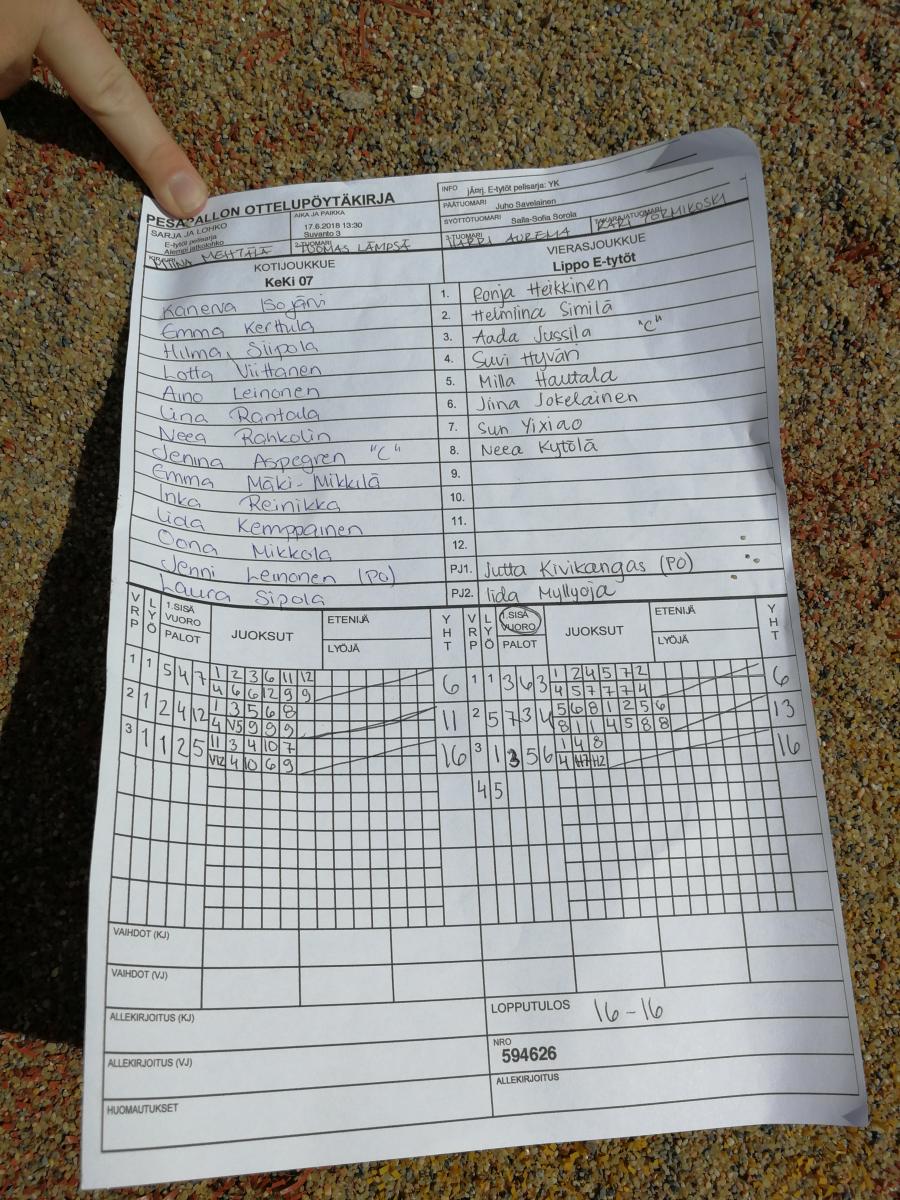 PESÄPALLON OTTELUPÖYTÄKIRJA
INFO jÄnrj. E-tytöt pelisarja: YK
SARJA JA LOHKO
E-tytöt pelisarja
Alempi jatkolohko
AIKA JA PAIKKA
17.6.2018 13:30
Suvanto 3
PÄÄTUOMARI Juho Savelainen
SYÖTTÖTUOMARI Salla-Sofia Sorola
TAKARAJATUOMARI KARI TORMIKOSKI
KIRJURI MEHTÄLÄ
2-TUOMARI TUOMAS LÄMPSÄ
3-TUOMARI HARRI AUREMA
KOTIJOUKKUE
KeKi 07
VIERASJOUKKUE
Lippo E-tytöt
Kanerva Isojärvi 1. Ronja Heikkinen
Emma Kerttula 2. Helmiina Similä
Hilma Siipola 3. Aada Jussila "C"
Lotta Viittanen 4. Suvi Hyväri
Aino Leinonen 5. Milla Hautala
Iina Rantala 6. Jiina Jokelainen
Neea Rahkolin 7. Sun Yixiao
Jenina Aspegren "C" 8. Neea Kytölä
Emma Mäki-Mikkilä 9.
Inka Reinikka 10.
Iida Kemppainen 11.
Oona Mikkola 12.
Jenni Leinonen (PO) PJ1. Jutta Kivikangas (PO)
Laura Sipola PJ2. Iida Myllyoja
VRP LYÖ 1.SISÄ VUORO PALOT JUOKSUT ETENIJÄ LYÖJÄ YHT VRP LYÖ 1.SISÄ VUORO PALOT JUOKSUT ETENIJÄ LYÖJÄ YHT
1 1 5 4 7 1 2 3 6 11 12 6 1 1 3 6 3 1 2 4 5 7 2 6
4 6 6 12 9 9 4 5 7 7 7 4
2 1 2 4 12 1 3 5 6 8 11 2 5 7 3 4 5 6 8 1 2 5 6 13
4 V5 9 9 9 8 1 1 4 5 8 8
3 1 1 2 5 11 3 4 10 7 16 3 1 3 5 6 1 4 8 16
V12 4 10 6 9 4 H7 H2
4 5
VAIHDOT (KJ)
VAIHDOT (VJ)
ALLEKIRJOITUS (KJ)
LOPPUTULOS 16-16
ALLEKIRJOITUS (VJ)
NRO
594626
HUOMAUTUKSET
ALLEKIRJOITUS